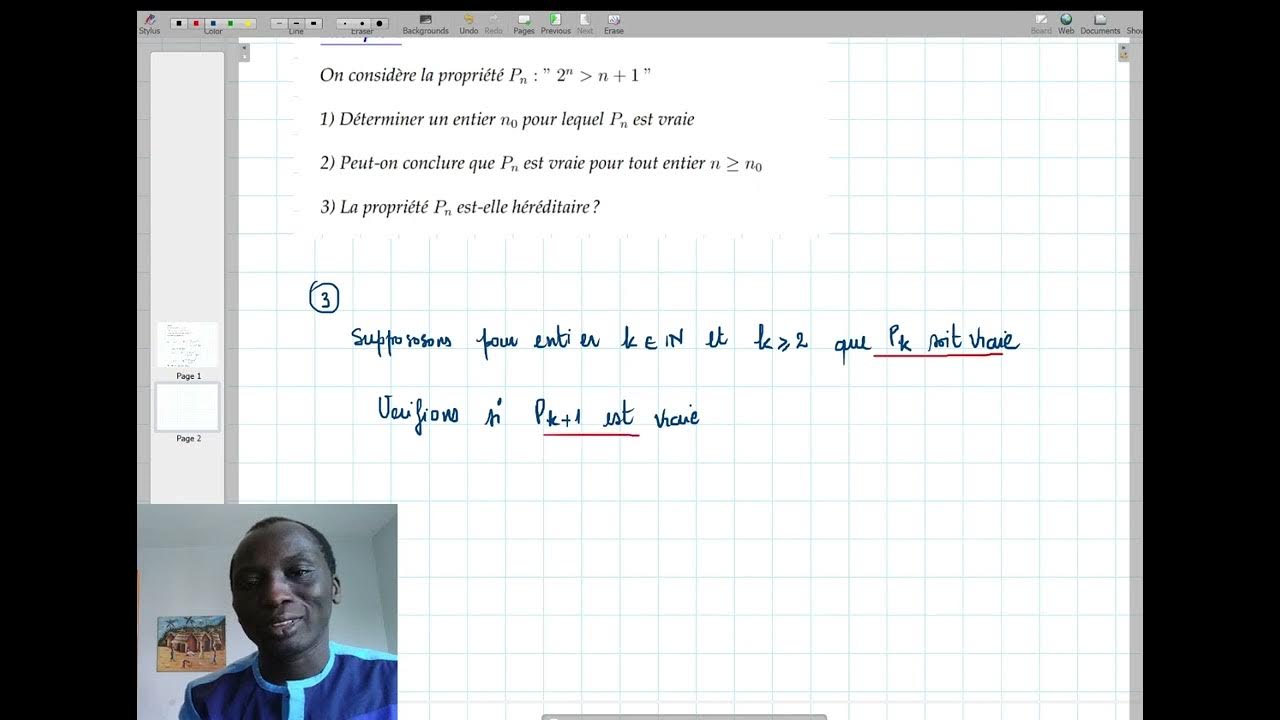 Stylus Color Line Eraser Backgrounds Undo Redo Pages Previous Next Erase Board Web Documents Show
On considère la propriété Pₙ : " 2ⁿ > n + 1 "
1) Déterminer un entier n₀ pour lequel Pₙ est vraie
2) Peut-on conclure que Pₙ est vraie pour tout entier n ≥ n₀
3) La propriété Pₙ est-elle héréditaire ?
3
Suppososons pour entier k ∈ ℕ et k ⩾ 2 que Pₖ soit vraie
Verifions si Pₖ₊₁ est vraie
Page 1
Page 2